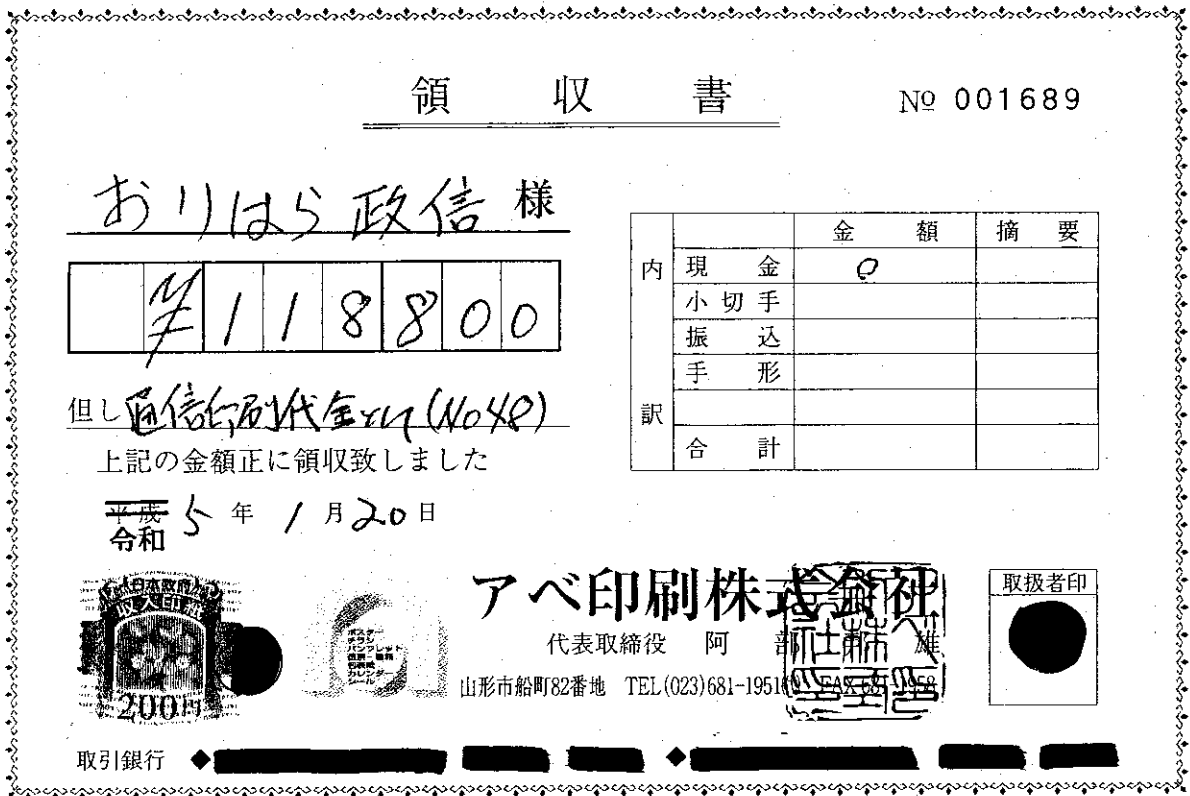 領収書
№ 001689
おりはら政信 様
¥118800
但し 通信印刷代金として(No48)
上記の金額正に領収致しました
平成
令和 5年 1月20日
金額 摘要
内訳
現金 0
小切手
振込
手形
合計
日本政府
収入印紙
200円
ポスター
チラシ
パンフレット
伝票・
カレンダー
シール
アベ印刷株式会社
代表取締役 阿部 雄
山形市船町82番地 TEL(023)681-1951
取扱者印
取引銀行 ◆ ◆